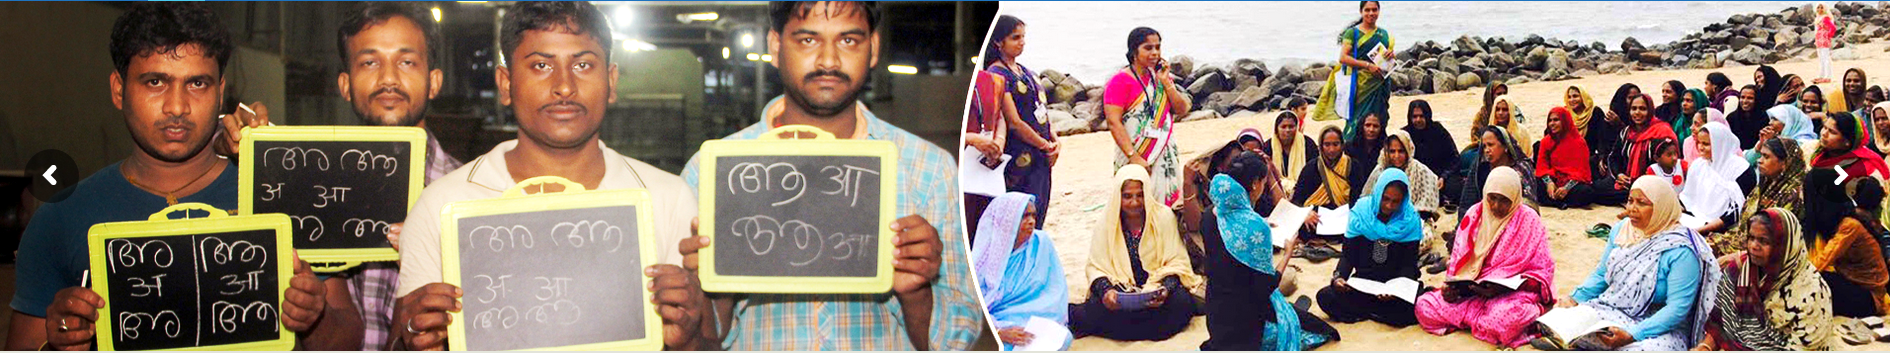 അ ആ
अ आ
അ ആ
അ ആ
अ आ
അ ആ
അ ആ
अ आ
അ ആ
ആ आ
ആ आ